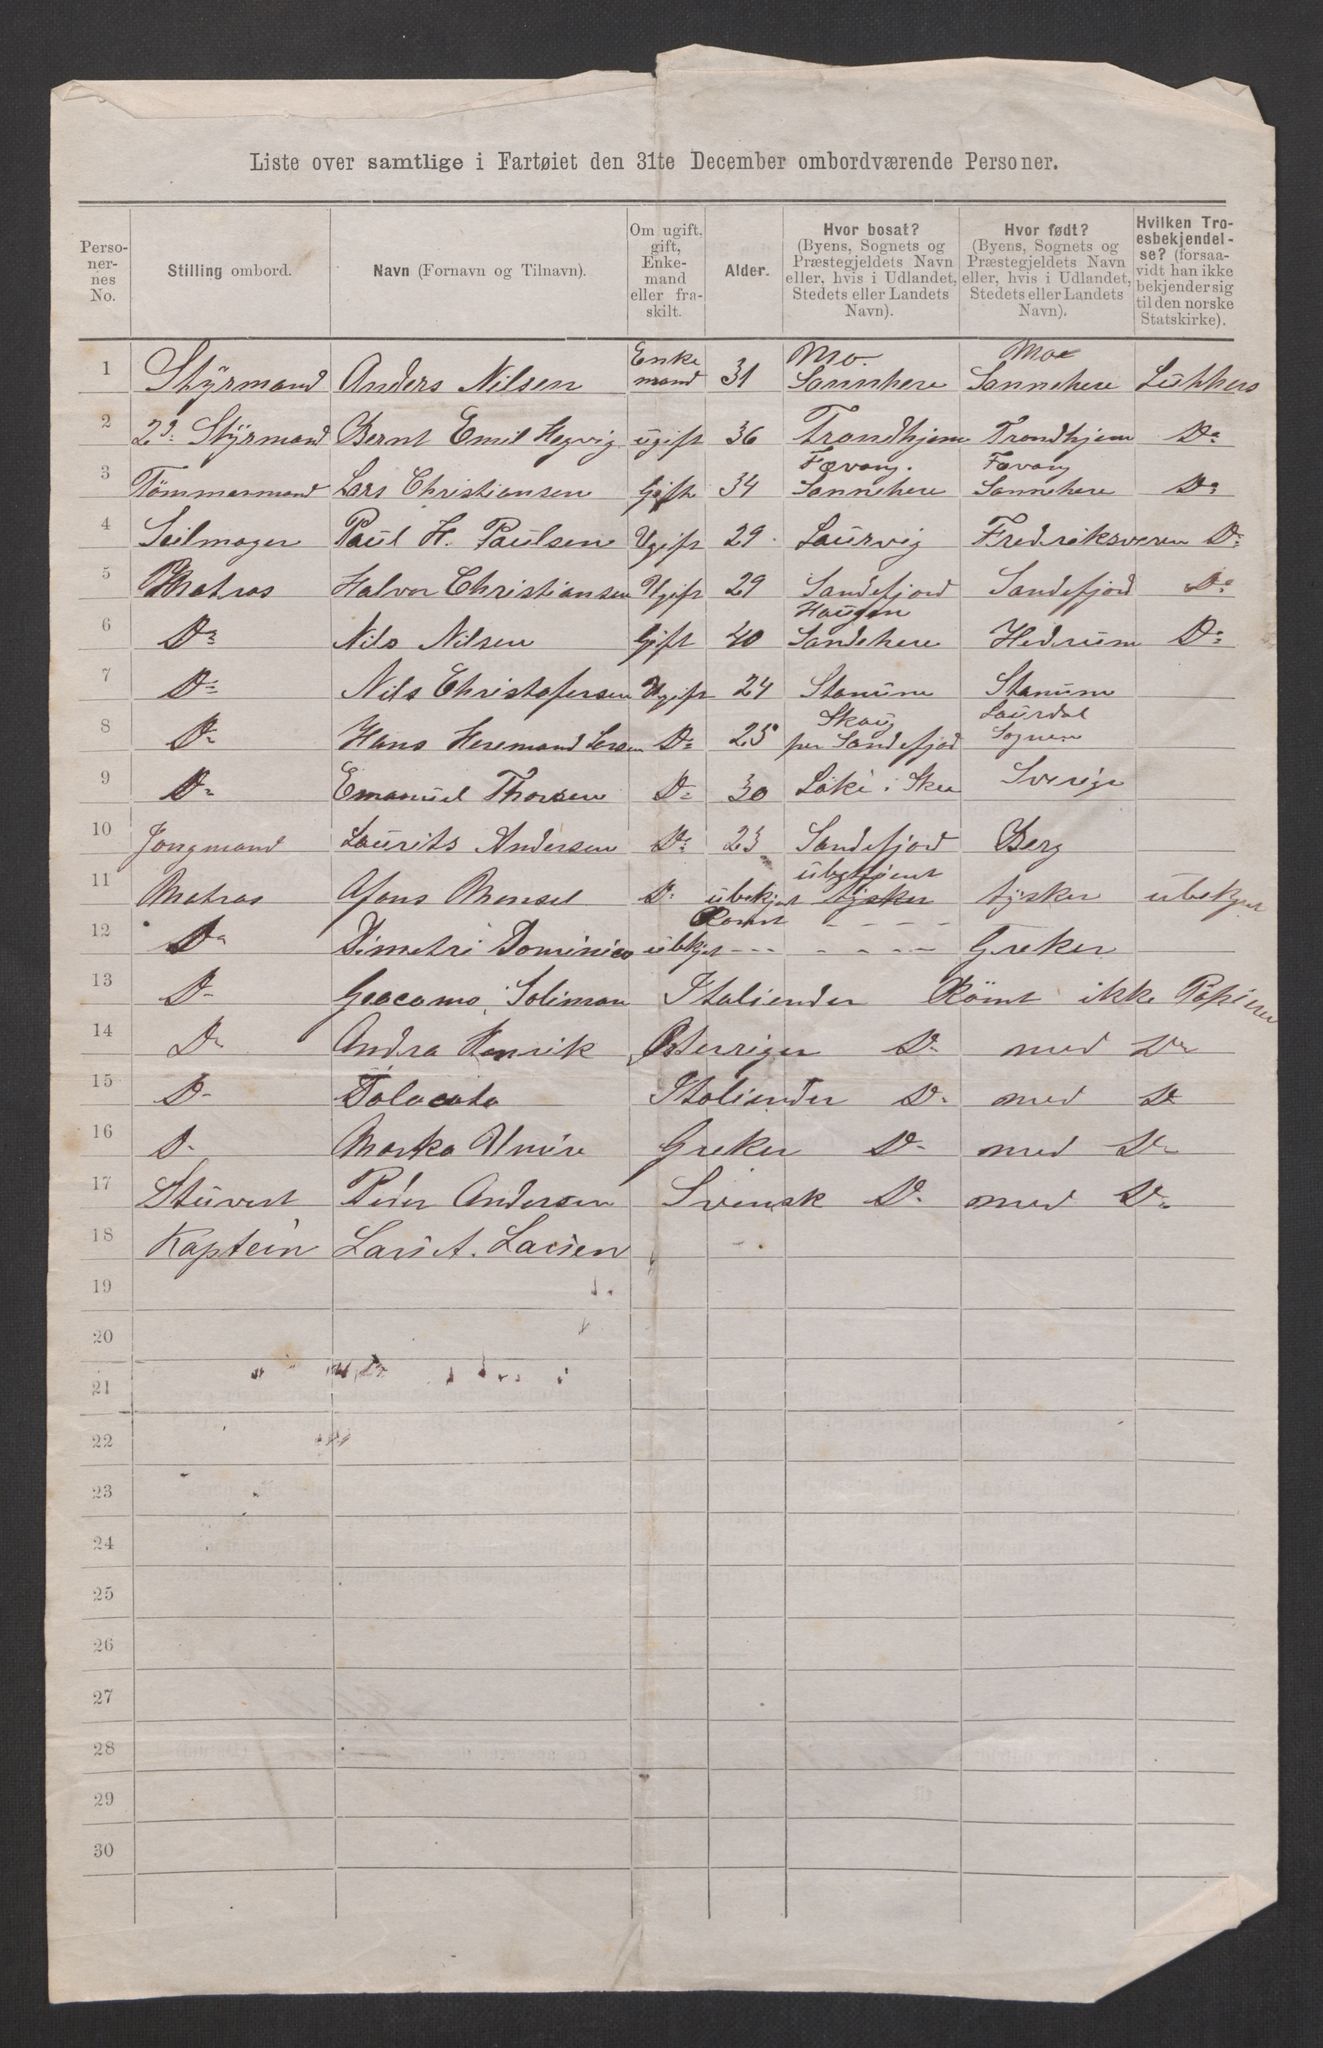 Liste over samtlige i Fartøiet den 31te December ombordværende Personer.
Perso-
ner-
nes
No.
Stilling ombord.
Navn (Fornavn og Tilnavn).
Om ugift,
gift,
Enke-
mand
eller fra-
skilt.
Alder.
Hvor bosat?
(Byens, Sognets og
Præstegjeldets Navn
eller, hvis i Udlandet,
Stedets eller Landets
Navn).
Hvor født?
(Byens, Sognets og
Præstegjeldets Navn
eller, hvis i Udlandet,
Stedets eller Landets
Navn).
Hvilken Tro-
esbekjendel-
se? (forsaa-
vidt han ikke
bekjender sig
til den norske
Statskirke).
1 Stÿrmand Anders Nilsen Enke mand 31 Mo. Sannhere Moe Sannehere
2 2d: Stÿrmand Bernt Emil Hegvig ugift 36 Trondhjem Trondhjem Do
3 Tömmermand Lars Christiansen Gift 34 Favang. Sannehere Favang Sannehere Do
4 Seilmager Paul H. Paulsen Ugift 29 Laurvig Frederiksvern Do
5 Matros Halvor Christiansen Ugift 29 Sandefjord Sandefjord Do
6 Do Nils Nilsen Gift 40 Haugen Sandehere Hedrum Do
7 Do Nils Christofersen Ugift 24 Stamme Stamme
8 Do Hans Heremand Larsen Do 25 Skaug per Sandefjord Laurdal Sognen
9 Do Emanuel Thorsen Do 30 i Sverige
10 Jongmand Laurits Andersen Do 23 Sandefjord Berg
11 Matros Afons Mensel Do ubekjent ubekjent tysker ubekjent
12 Do Dimetri Dominico ubekjet Römt - - - Greker
13 Do Geacomo Soliman Italiender Römt ikke Papirer
14 Do Andra Henrik Österriger Do med Do
15 Do Italiender Do med Do
16 Do Marko Greker Do med Do
17 Stuvert Peder Andersen Svensk Do med Do
18 Kaptein Lars A. Larsen
19
20
21
22
23
24
25
26
27
28
29
30